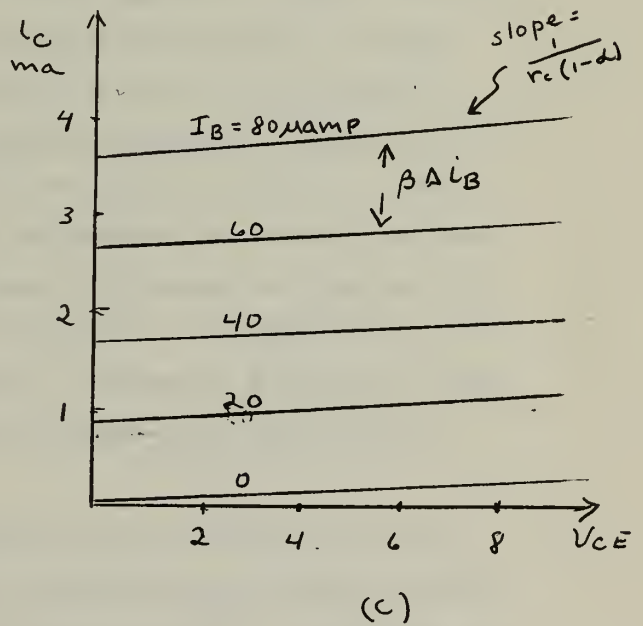 slope =
1
rc (1-α)
ic
ma
4
IB = 80 μamp
β Δ iB
3
60
2
40
1
20
0
2 4. 6 8 VCE
(C)